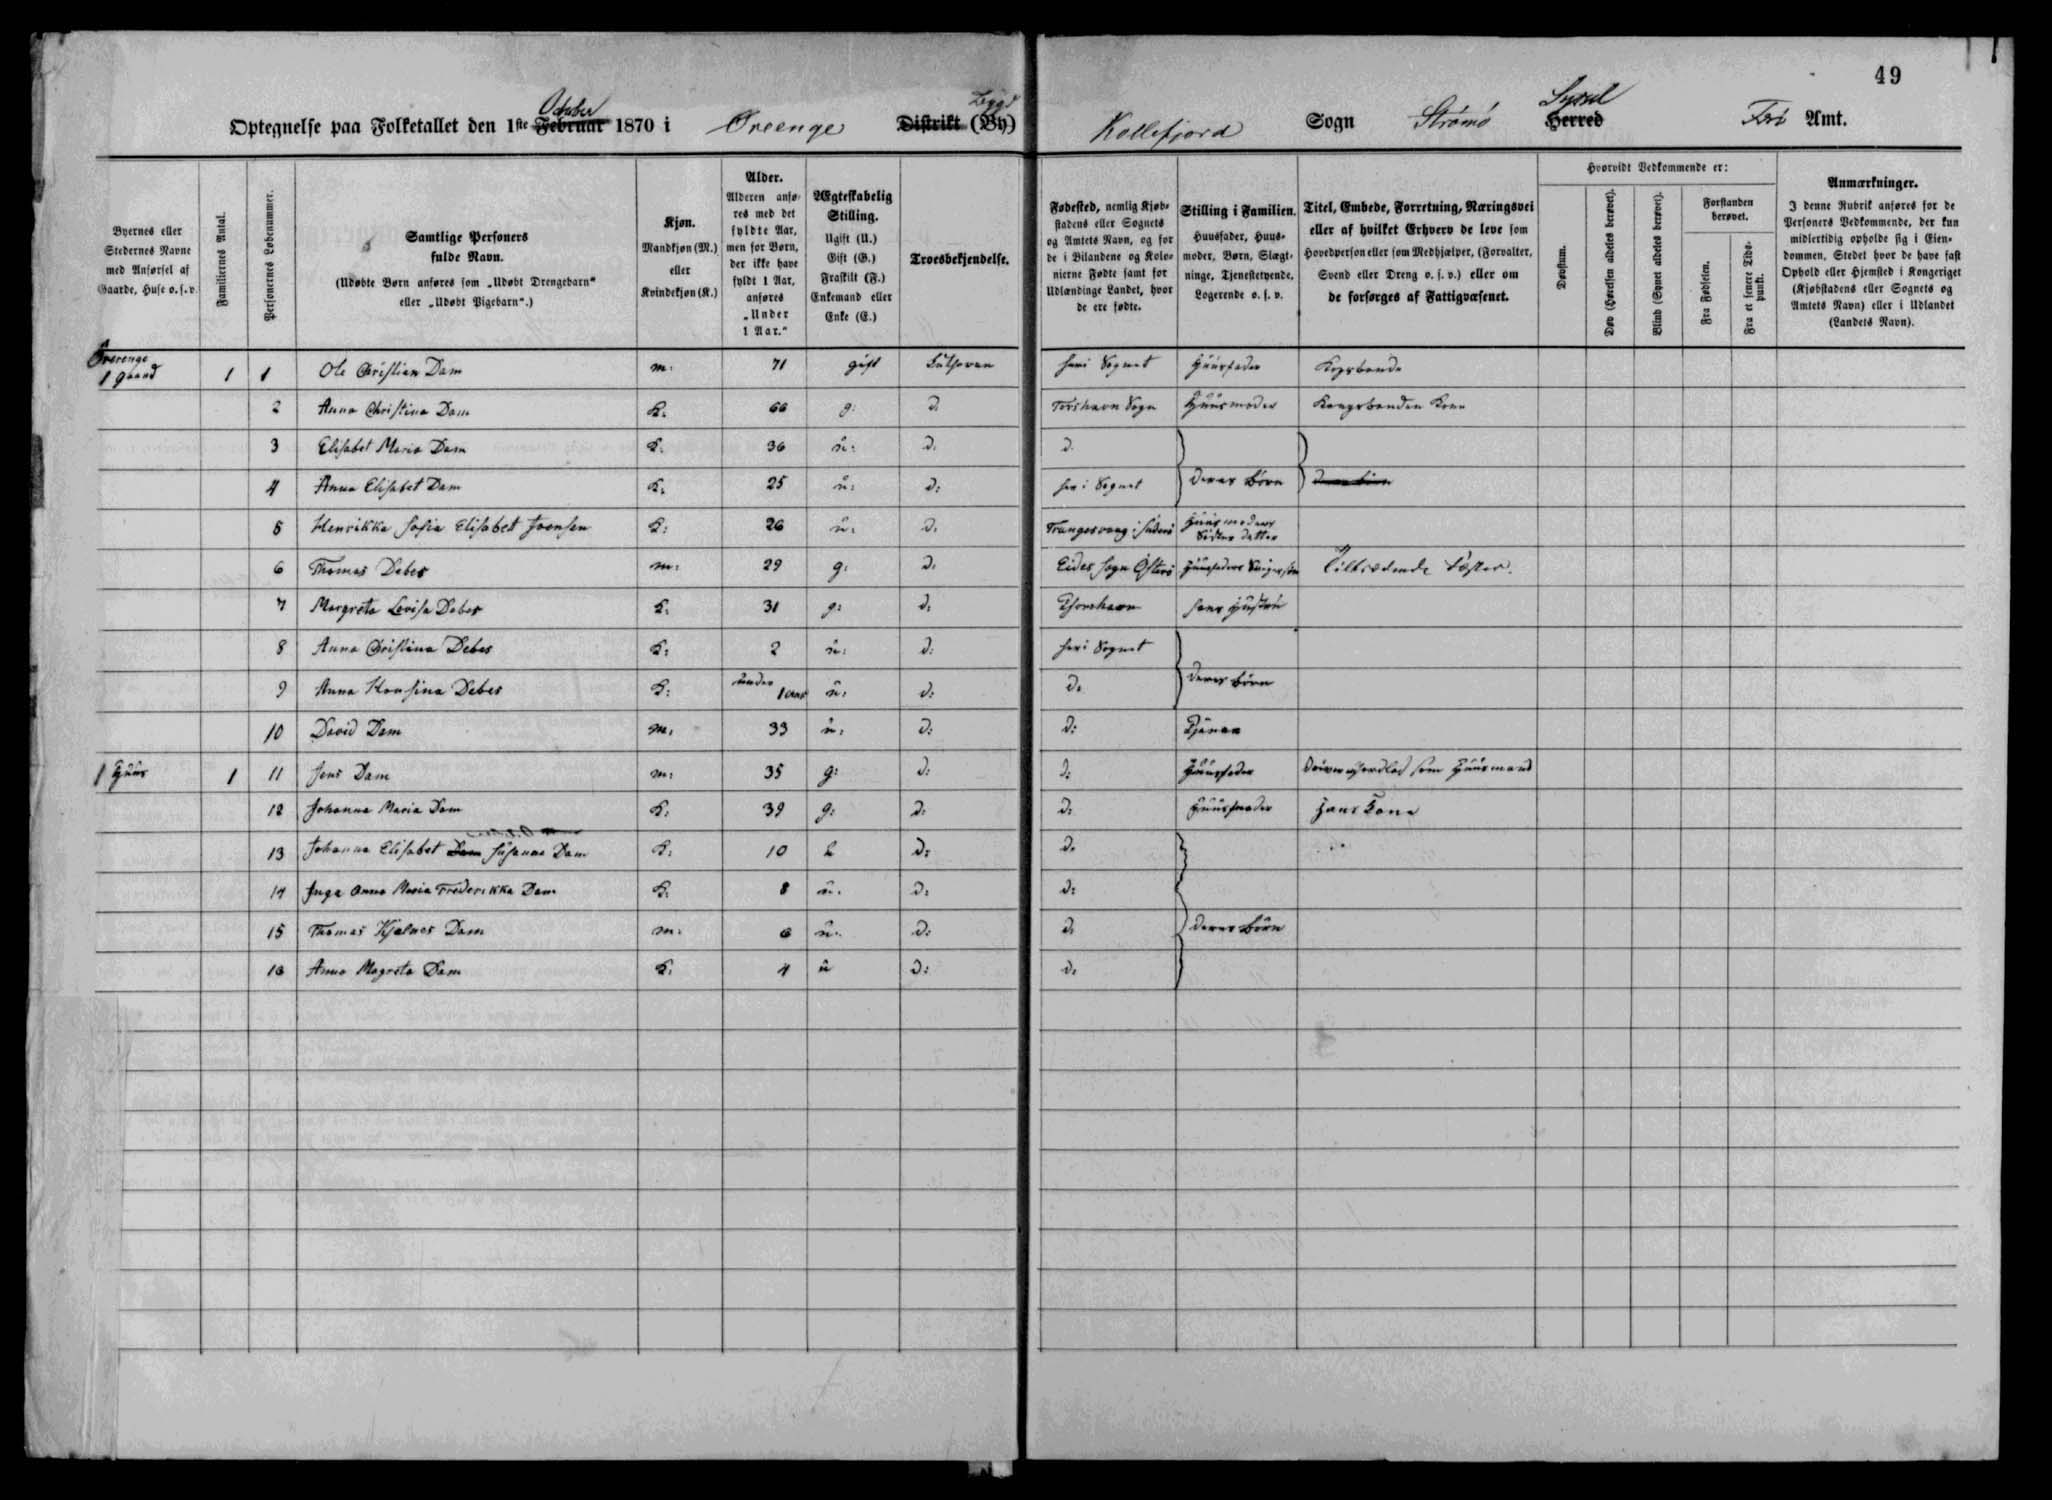 49
Optegnelse paa Folketallet den 1ste Februar October 1870 i Øreenge Distrikt (By) Bygd Kollefjord Sogn Strømø Herred Sysul Amt.
Byernes eller Stedernes Navne med Anførsel af Gaarde, Huse o. s. v.
Familiernes Antal.
Personernes Løbenummer.
Samtlige Personers fulde Navn.
(Udøbte Børn anføres som „Udøbt Drengebarn“ eller „Udøbt Pigebarn“.)
Kjøn.
Mandkjøn (M.) eller Kvindekjøn (K.)
Alder.
Alderen anføres med det fyldte Aar, men for Børn, der ikke have fyldt 1 Aar, anføres „Under 1 Aar.“
Ægteskabelig Stilling.
Ugift (U.)
Gift (G.)
Fraskilt (F.)
Enkemand eller Enke (E.)
Troesbekjendelse.
Fødested, nemlig Kjøbstadens eller Sognets og Amtets Navn, og for de i Bilandene og Kolonierne Fødte samt for Udlændinge Landet, hvor de ere fødte.
Stilling i Familien.
Huusfader, Huusmoder, Børn, Slægtninge, Tjenestetyende, Logerende o. s. v.
Titel, Embede, Forretning, Næringsvei eller af hvilket Erhverv de leve som Hovedperson eller som Medhjælper, (Forvalter, Svend eller Dreng o. s. v.) eller om de forsørges af Fattigvæsenet.
Hvorvidt Vedkommende er:
Døvstum.
Døv (Hørelsen aldeles berøvet).
Blind (Synet aldeles berøvet).
Forstanden berøvet.
Fra Fødselen.
Fra et senere Tidspunkt.
Anmærkninger.
I denne Rubrik anføres for de Personers Vedkommende, der kun midlertidig opholde sig i Eiendommen, Stedet hvor de have fast Ophold eller Hjemsted i Kongeriget (Kjøbstadens eller Sognets og Amtets Navn) eller i Udlandet (Landets Navn).
1 gaard 1 1 Ole Christian Dam m: 71 gift Lutheran her i Sognet Huusfader Kongsbonde
2 Anna Christina Dam K: 66 g: d. Torshavn Sogn Huusmoder Kongsbonden Kone
3 Elisabet Maria Dam K: 36 u: d. d.
4 Anna Elisabet Dam K: 25 u: d: her i Sognet deres Børn
5 Henrikka Sofia Elisabet Joensen K: 26 u: d. Trangesvaag i Suderø Huusmoders Søster datter
6 Thomas Debes m: 29 g: d. Eides Sogn Østerø Huusfaders Svigersøn
7 Margreta Lovisa Debes K: 31 g: d: Thorshavn hans Hustru
8 Anna Christina Debes K: 2 u: d: her i Sognet
9 Anna Debes K: under 1 aar u: d: d: deres Børn
10 David Dam m: 33 u: d: d:
1 Huus 1 11 Jens Dam m: 35 g: d: d: Huusfader som Huusmand
12 Johanna Maria Dam K: 39 g: d: d: Huusmoder Hans Kone
13 Johanna Elisabet Dam Susanna Dam K: 10 d: d.
14 Inga Anna Maria Frederikka Dam K: 8 u. d: d:
15 Thomas Kjelnes Dam m: 6 u. d: d. deres Børn
16 Anna Magreta Dam K: 4 u d: d.